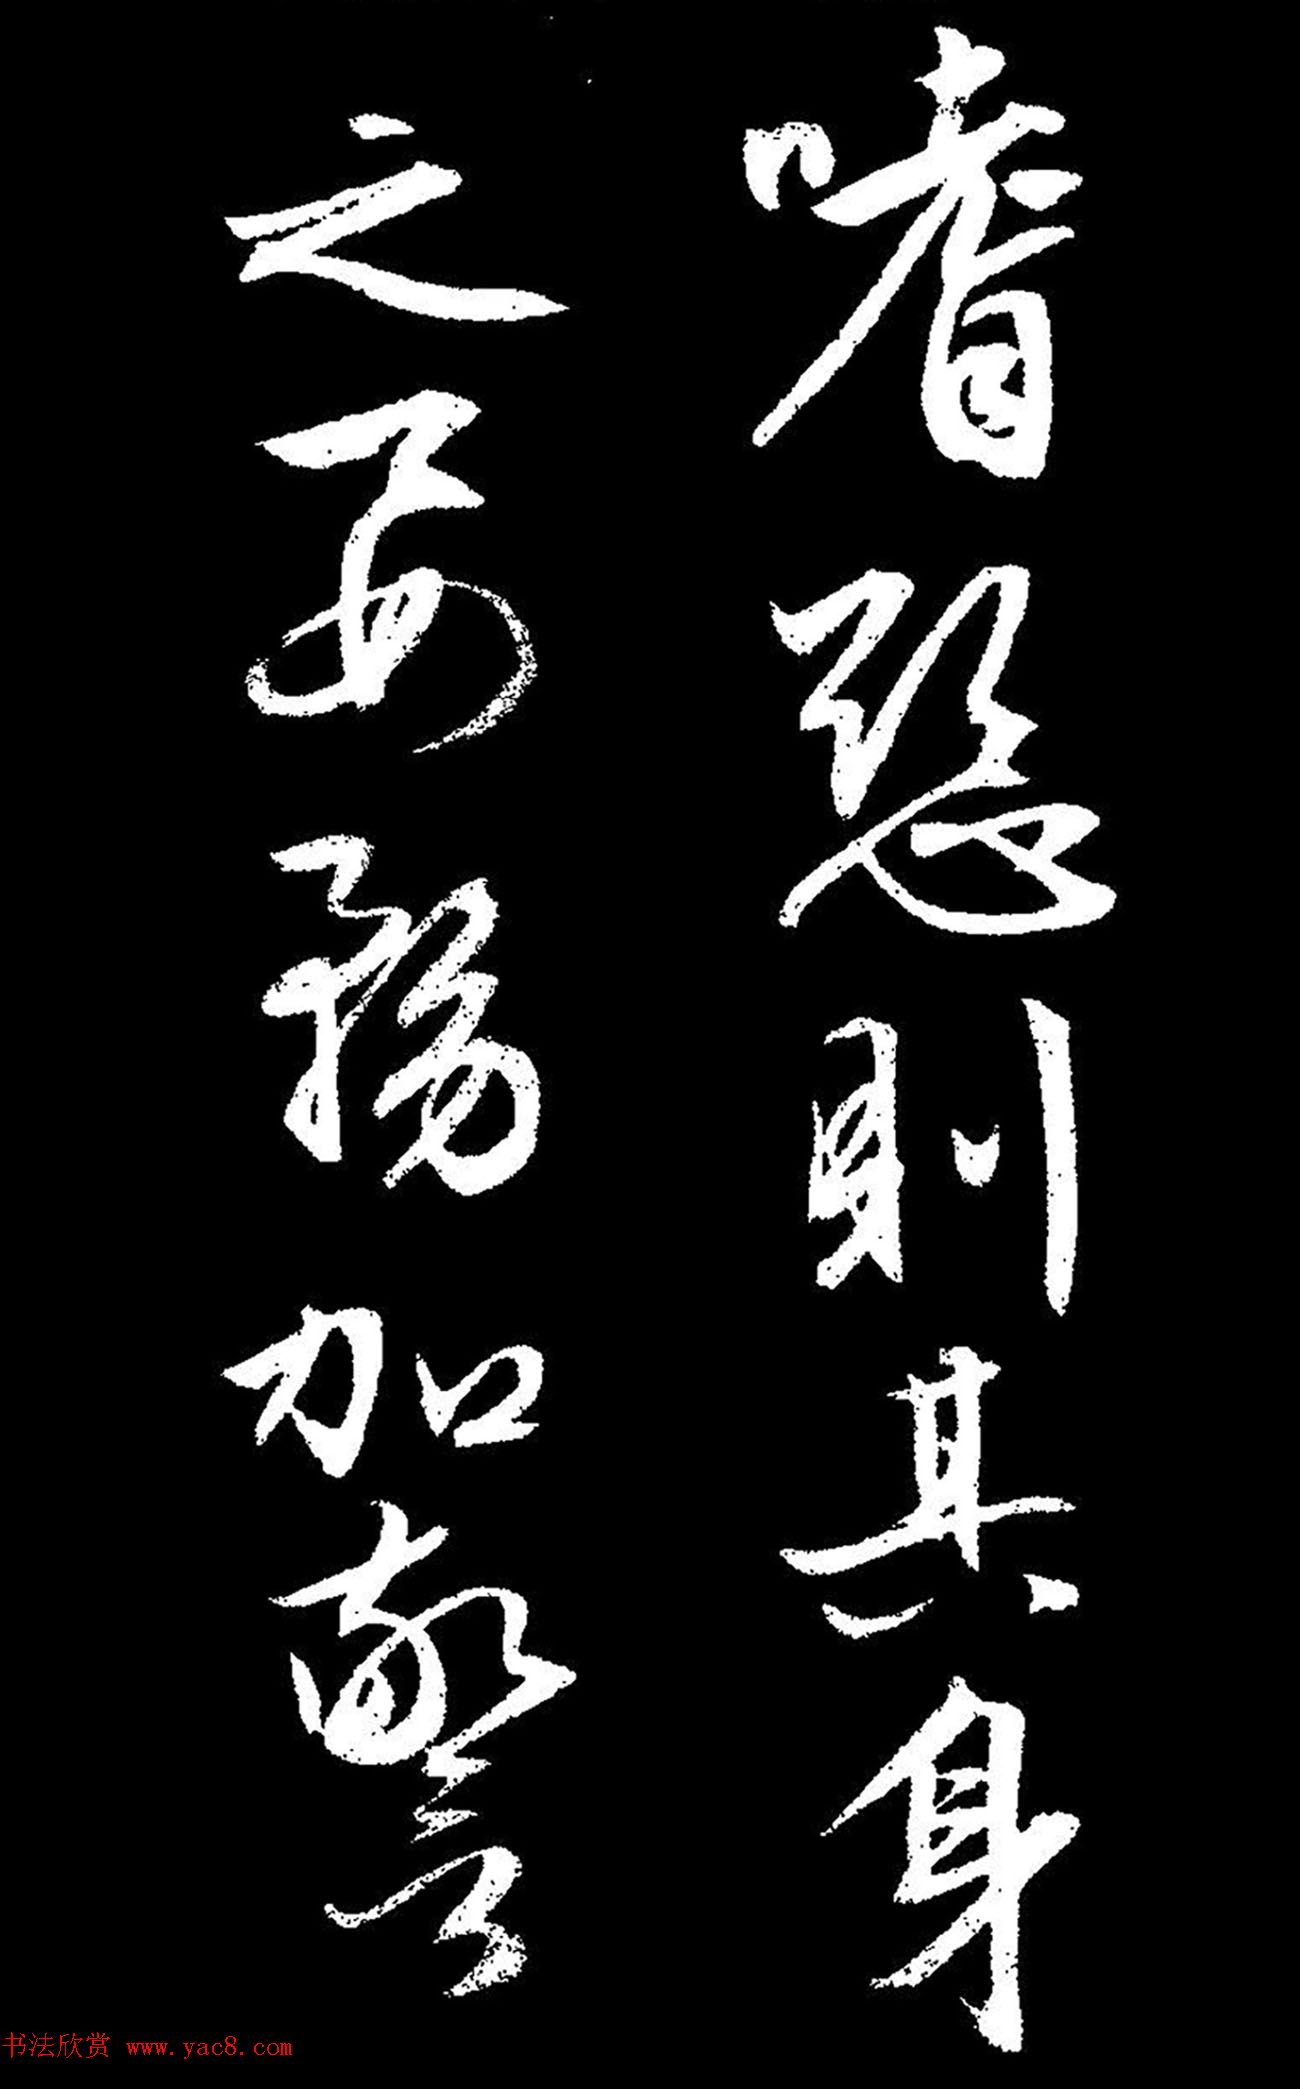 嗜則其身
之要務加警
书法欣赏 www.yac8.com